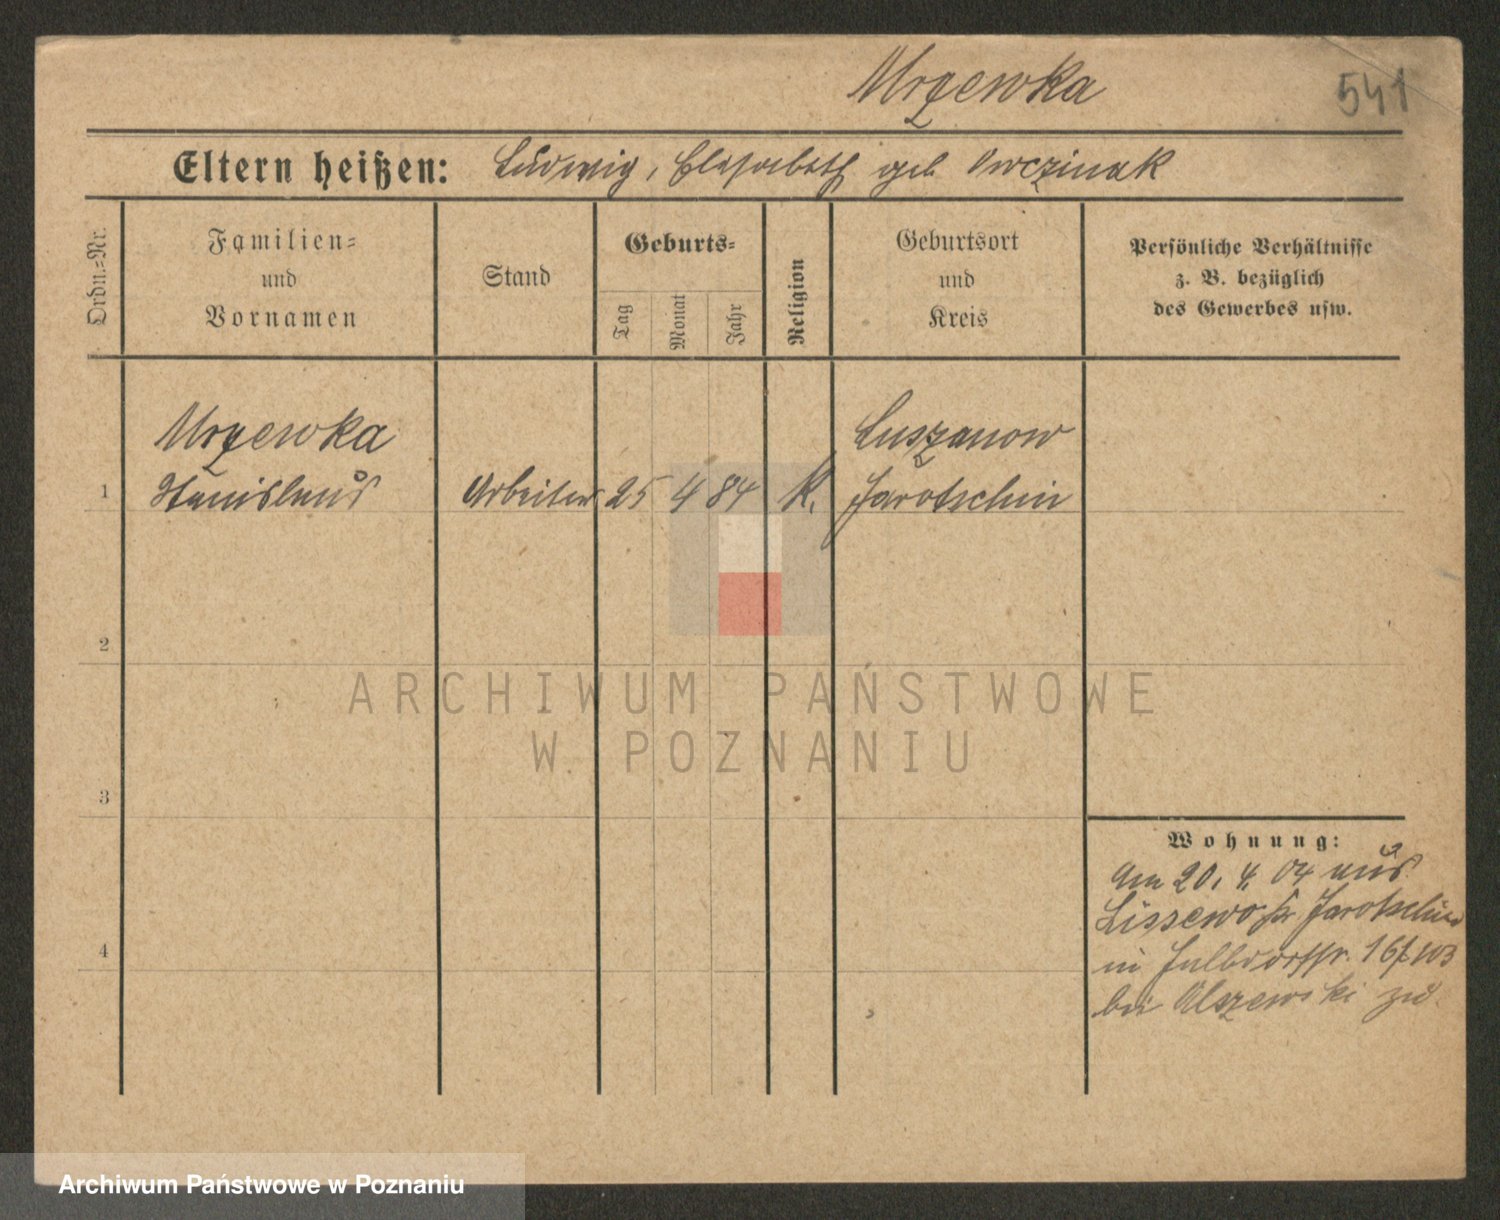 Mrzewka
541
Eltern heißen: Ludwig, Elisabeth geb Owczinak
Ordn.-Nr.
Familien-
und
Vornamen
Stand
Geburts-
Tag
Monat
Jahr
Religion
Geburtsort
und
Kreis
Persönliche Verhältnisse
z. B. bezüglich
des Gewerbes usw.
Mrzewka
Luszanow
1
Stanislaus
Arbeiter
25
4
84
K.
Jarotschin
2
ARCHIWUM PAŃSTWOWE
W POZNANIU
3
Wohnung:
am 20. 4. 04 aus
Lissewo Kr Jarotschin
4
in
bei Olszewski zu.
Archiwum Państwowe w Poznaniu